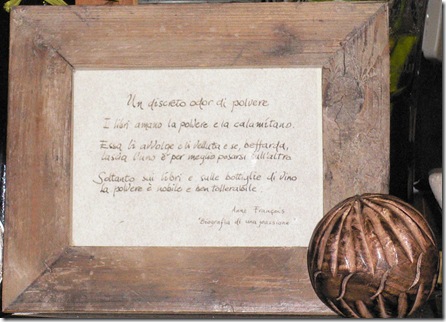 Un discreto odor di polvere
I libri amano la polvere e la calamitano.
Essa li avvolge e li velluta e se, beffarda,
lascia l'uno è per meglio posarsi sull'altro
Soltanto sui libri e sulle bottiglie di vino
la polvere è nobile e ben tollerabile
Anne François
"Biografia di una passione"